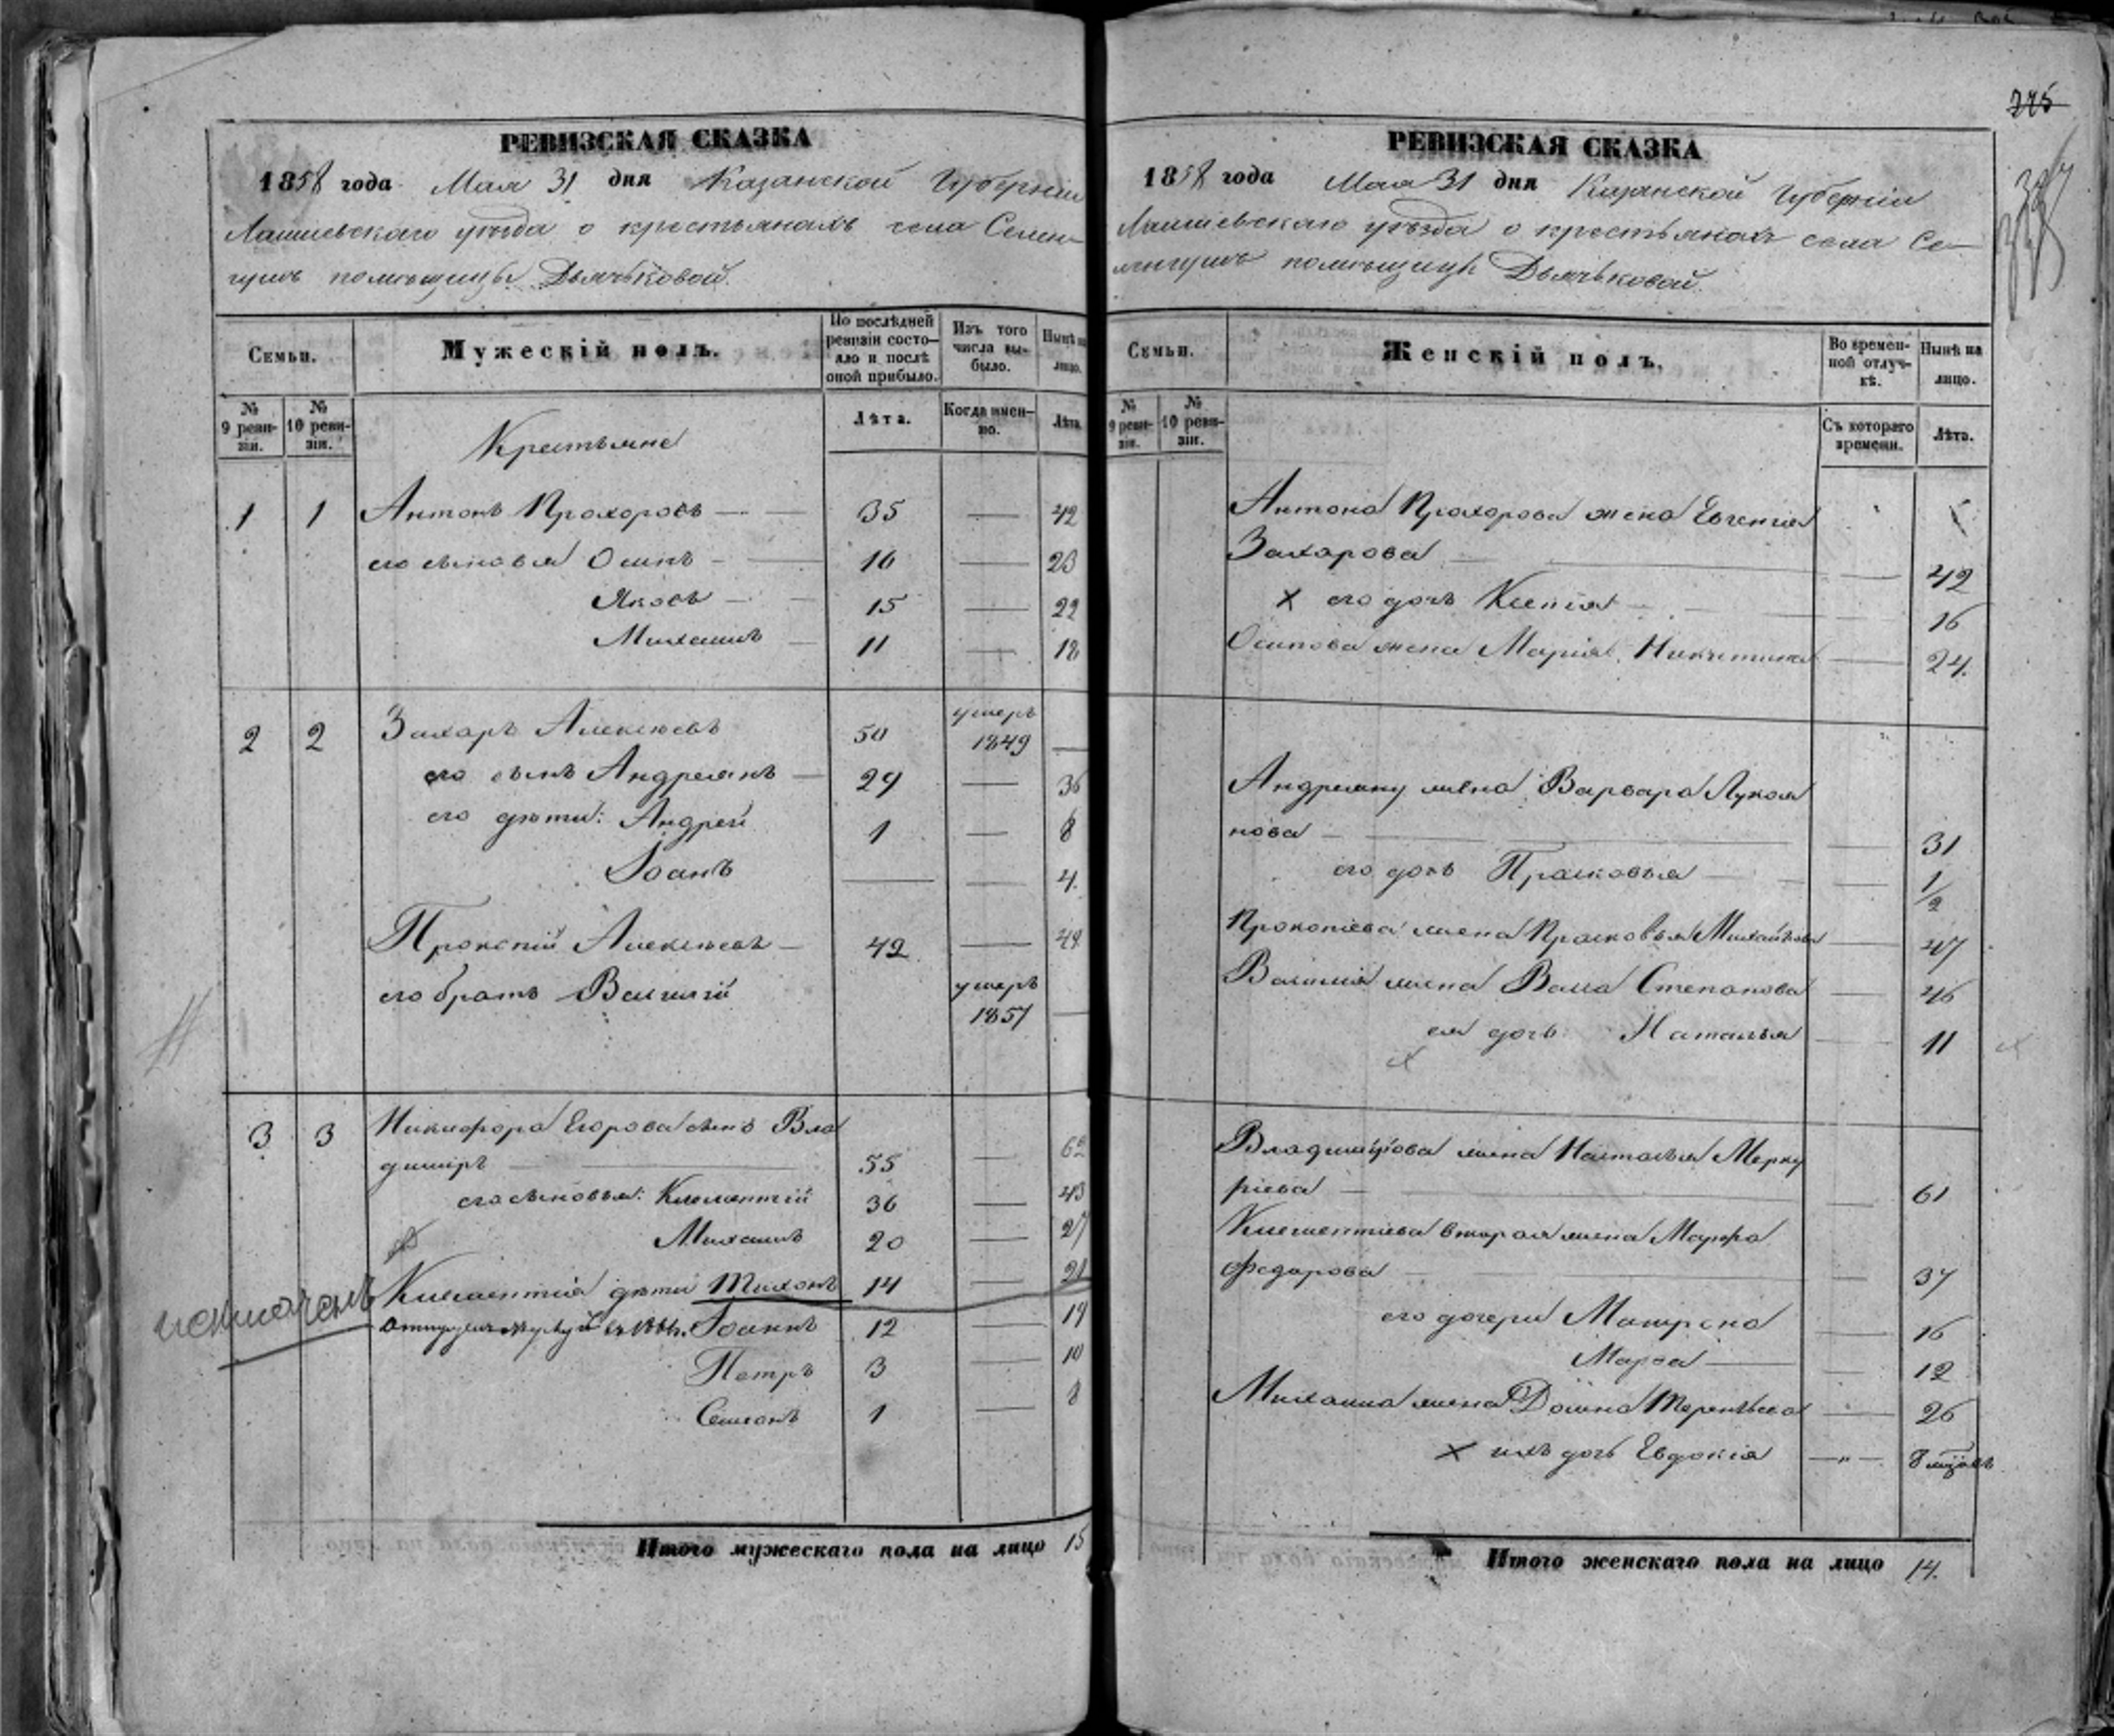 275
РЕВИЗСКАЯ СКАЗКА
1858 года Мая 31 дня Казанской Губерніи
Лаишевскаго уѣзда о крестьянахъ села Селен-
гушъ помѣщицы Дьячьковой.
Семьи.
Мужескій полъ.
По послѣдней ревизіи состояло и послѣ оной прибыло.
Изъ того числа выбыло.
Нынѣ на лицо.
№ 9 ревизіи.
№ 10 ревизіи.
Лѣта.
Когда именно.
Лѣта.
Крестьяне
1 1 Антонъ Прохоровъ — 35 — 42
его сыновья Осипъ — 16 — 23
Яковъ — 15 — 22
Михаилъ — 11 — 18
2 2 Захаръ Алексѣевъ 50 умеръ 1849 —
его сынъ Андреянъ — 29 — 36
его дѣти: Андрей 1 — 8
Іоанъ — — 4.
Прокопій Алексѣевъ — 42 — 49
его братъ Василій умеръ 1857 —
3 3 Никифора Егорова сынъ Вла
димиръ — 55 — 62
его сыновья: Климентій 36 — 43
Михаилъ 20 — 27
Климентія дѣти Тихонъ 14 — 21
исключенъ
Іоаннъ 12 — 19
Петръ 3 — 10
Семенъ 1 — 8
Итого мужескаго пола на лицо 15
РЕВИЗСКАЯ СКАЗКА
1858 года Мая 31 дня Казанской Губерніи
Лаишевскаго уѣзда о крестьянахъ села Се-
ленгушъ помѣщицы Дьячьковой.
Семьи.
Женскій полъ.
Во временной отлучкѣ.
Нынѣ на лицо.
№ 9 ревизіи.
№ 10 ревизіи.
Съ котораго времени.
Лѣта.
Антона Прохорова жена Евгенія
Захарова — — 42
х его дочь Ксенія — — 16
Осипова жена Марія Никитина — 24.
Андреяну жена Варвара Лукоя
нова — — 31
его дочь Прасковья — — 1/2
Прокопіева жена Прасковья Михайлова — 47
Василия жена Васса Степанова — 46
ея дочь Наталья — 11
Владимірова жена Наталья Мерку
ріева — — 61
Климентіева вторая жена Марфа
Федорова — — 37
его дочери Матрена — 16
Марфа — — 12
Михаила жена Домна Терентьева — 26
х ихъ дочь Евдокія — " — 8 мѣсяцъ
Итого женскаго пола на лицо 14.